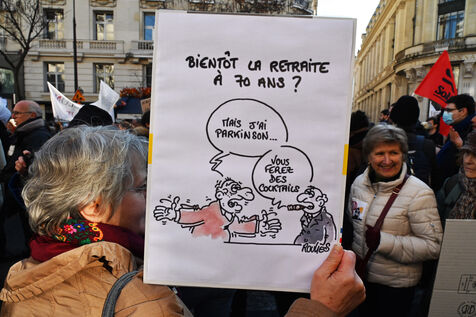 BIENTÔT LA RETRAITE
À 70 ANS ?
MAIS J'AI
PARKINSON...
VOUS
FEREZ
DES
COCKTAILS